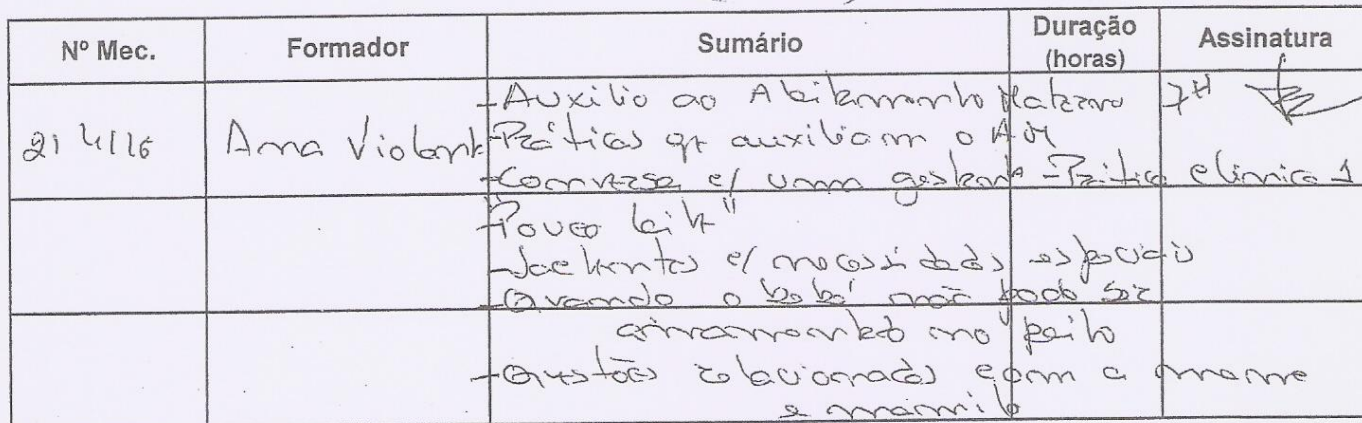 Nº Mec. Formador Sumário Duração (horas) Assinatura
- Auxilio ao Aleitamento Materno 7H
21 4/16 Ana Violante - Práticas que auxiliam o AM
- Conversa c/ uma gestante - Prática clinica 1
- "Pouco leite"
- Lactentes c/ necessidades especiais
- Quando o bebé não pode ser
amamentado no peito
- Questões relacionadas com a mama
e mamilo